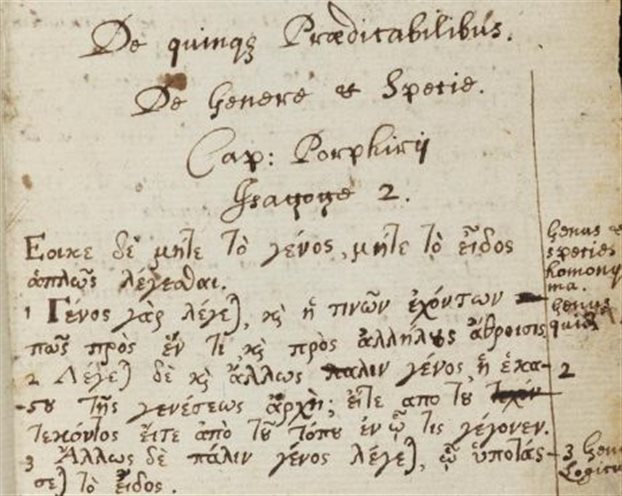 De quinqȝ Prædicabilibus.
De Genere & Specie.
Cap: Porphirij
Isagoge 2.
Εοικε δὲ μήτε τὸ γένος, μήτε τὸ εἶδος
ἁπλῶς λέγεσθαι.
1 Γένος γὰρ λέγε), κ̀ς ἥ τινῶν ἐχόντων
πῶς προς ἕν τι κ̀ς πρὸς ἀλλήλους ἄθροισις
2 Λέγε) δὲ κ̀ς ἄλλως παλιν γένος, ἡ ἑκα-
-στου τῆς γενέσεως ἀρχὴ; εἴτε απο τοῦ
τεκόντος εἴτε ἀπὸ τοῦ τόπου ἐν ᾧ τις γέγονεν.
3 Ἄλλως δὲ πάλιν γένος λέγε), ᾧ ὑποτάσ-
σε) τὸ εἶδος.
Genus &
species
homony
ma.
Genus
quid
2
3 Genu
Logicu